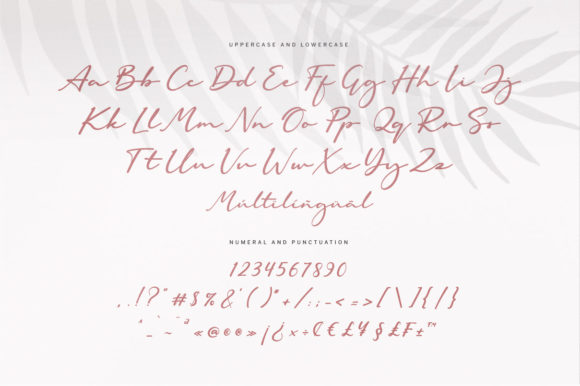 UPPERCASE AND LOWERCASE
Aa Bb Cc Dd Ee Ff Gg Hh Ii Jj
Kk Ll Mm Nn Oo Pp Qq Rr Ss
Tt Uu Vv Ww Xx Yy Zz
Múltilíñgúàl
NUMERAL AND PUNCTUATION
1234567890
, . ! ? " # $ % & ' ( ) * + / : ; - < = > [ \ ] { | }
^ _ ` ~ ¨ ª « @ © ® » ¡ ¿ × ÷ ₡ € £ ¥ § ₤ ₣ ± ™